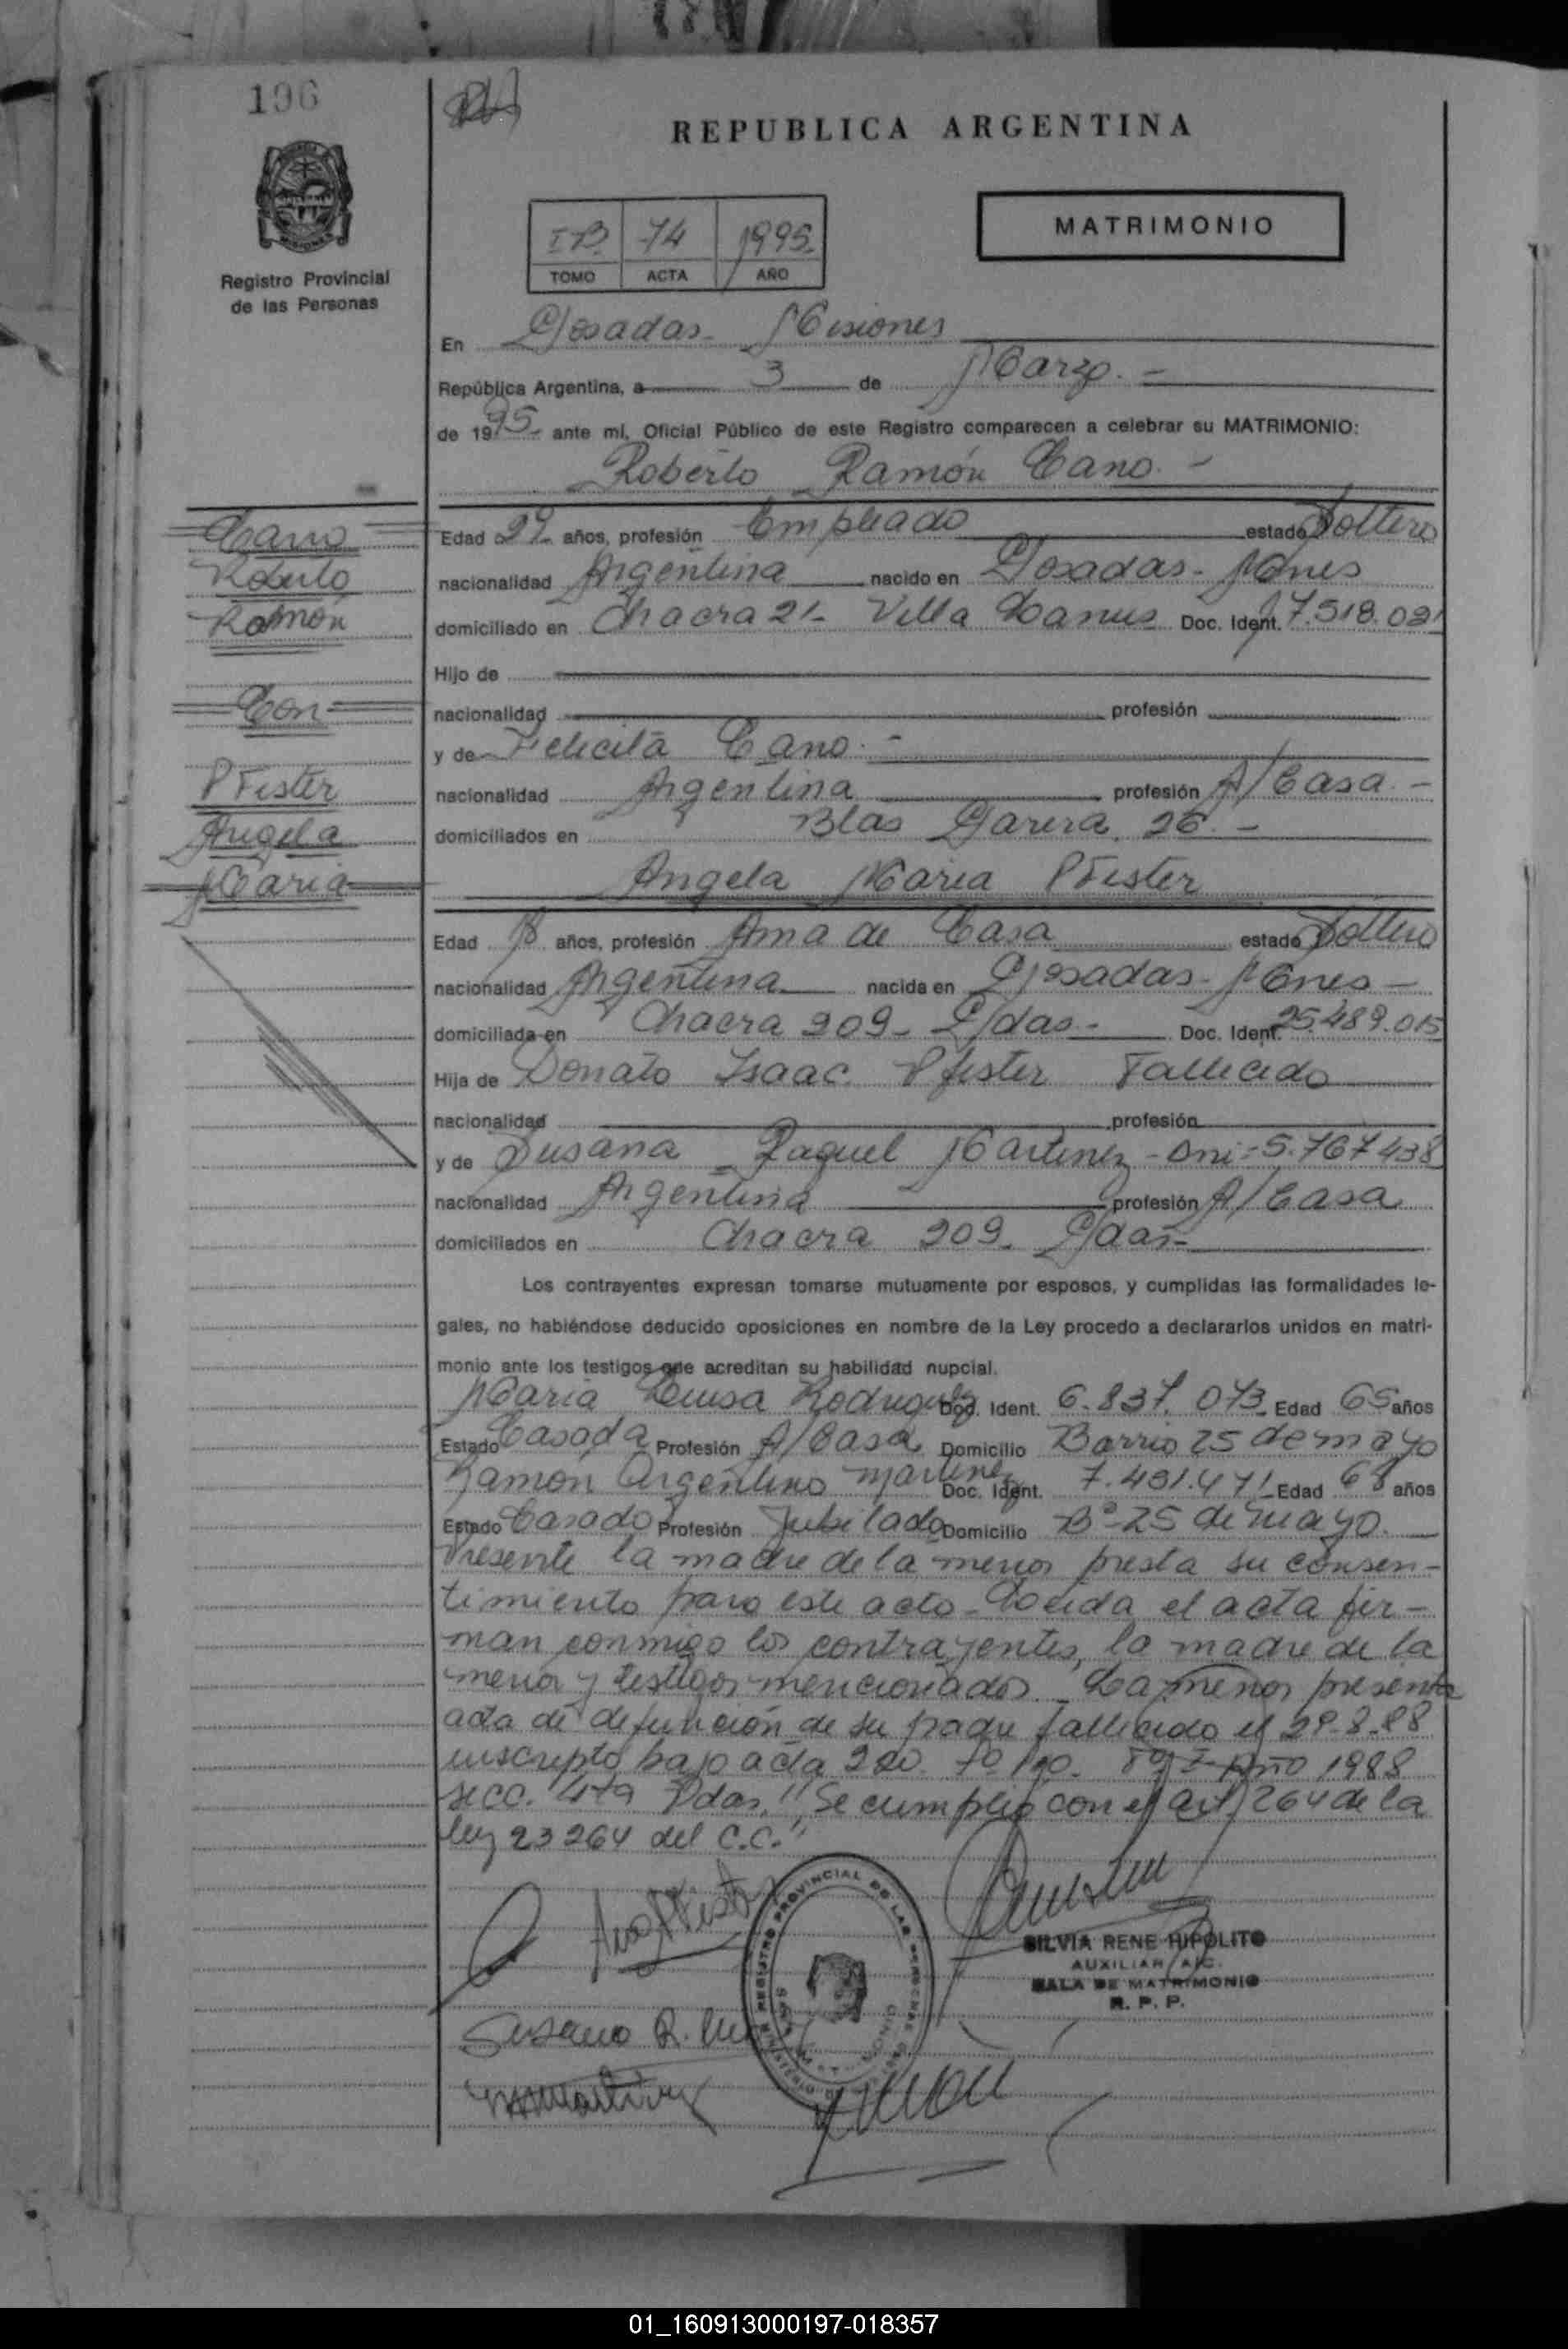 196
REPUBLICA ARGENTINA
IB 74 1995
TOMO ACTA AÑO
MATRIMONIO
Registro Provincial
de las Personas
En Posadas - Misiones
República Argentina, a 3 de Marzo. -
de 1995- ante mí, Oficial Público de este Registro comparecen a celebrar su MATRIMONIO:
Roberto Ramón Cano. -
Cano
Roberto
Ramón
Con
Pfister
Angela
Maria
Edad 29 años, profesión Empleado estado Soltero
nacionalidad Argentina nacido en Posadas - Mnes
domiciliado en Chacra 21- Villa Lanus Doc. Ident. 17.518.021
Hijo de
nacionalidad profesión
y de Felicita Cano. -
nacionalidad Argentina profesión A/Casa. -
domiciliados en Blas Parera 26. -
Angela Maria Pfister
Edad 18 años, profesión Ama de Casa estado Soltero
nacionalidad Argentina nacida en Posadas - Mnes -
domiciliada en Chacra 209 - Pdas. - Doc. Ident. 25.489.015
Hija de Donato Isaac Pfister Fallecido
nacionalidad profesión
y de Susana Raquel Martinez - Dni: 5.767438
nacionalidad Argentina profesión A/Casa
domiciliados en Chacra 209. Pdas -
Los contrayentes expresan tomarse mutuamente por esposos, y cumplidas las formalidades le-
gales, no habiéndose deducido oposiciones en nombre de la Ley procedo a declararlos unidos en matri-
monio ante los testigos que acreditan su habilidad nupcial.
Maria Luisa Rodriguez Doc. Ident. 6.837.073 Edad 65 años
Estado Casada Profesión A/Casa Domicilio Barrio 25 de mayo
Ramón Argentino Martinez Doc. Ident. 7.481.471 Edad 68 años
Estado Casado Profesión Jubilado Domicilio Bº 25 de mayo.
Presente la madre de la menor presta su consen-
timiento para este acto - Leida el acta fir-
man conmigo los contrayentes, la madre de la
menor y testigos mencionados. La menor presenta
acta de defunción de su padre fallecido el 29-8-88
inscripto bajo acta 220. Año 1988
secc. 4ta Pdas. "Se cumplio con el art. 264 de la
ley 23264 del C.C."
Susana R.
REGISTRO PROVINCIAL DE LAS PERSONAS
SILVIA RENE HIPOLITO
AUXILIAR A/C.
SALA DE MATRIMONIO
R. P. P.
01_160913000197-018357